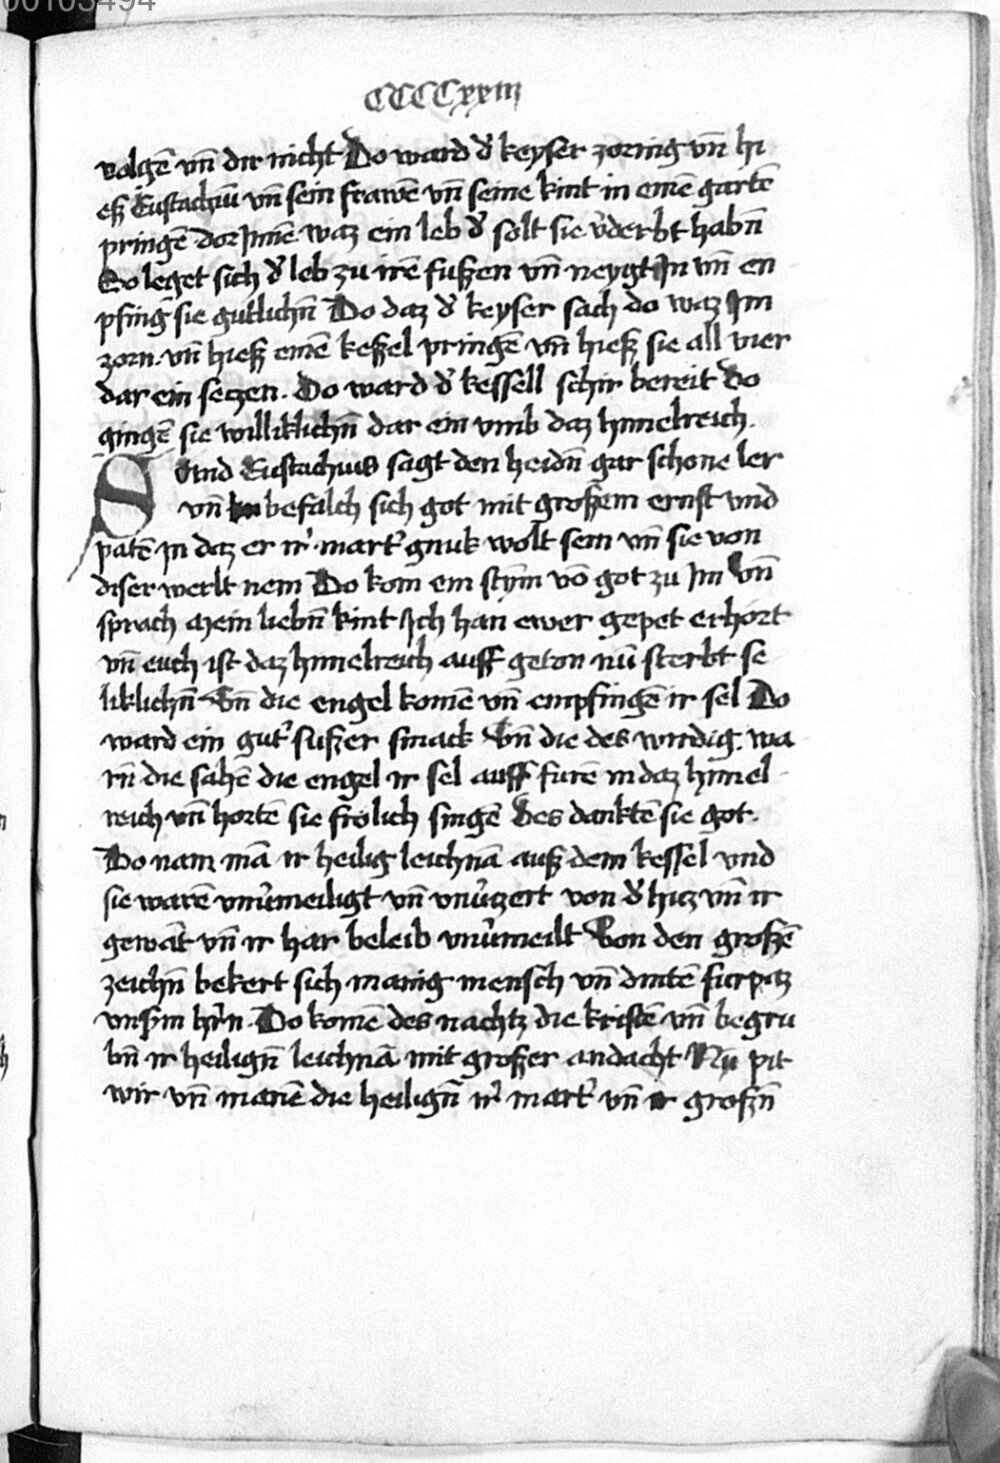 00103494
CCCCxxiij
volgē vn̄ dir nicht Do ward d' keyser zornig vn̄ hi
eß Eustachiū vn̄ sein frawē vn̄ seine kint in einē gartē
pringē dor Jnnē waz ein leb d' solt sie v'derbt habn̄
Do leget sich d' leb zu irē fußen vn̄ neygt Jn vn̄ en
pfing sie gutlichn̄ Do daz d' keyser sach do waz Jm
zorn. vn̄ hieß einē keßel pringē vn̄ hieß sie all vier
dar ein seczen. Do ward d' kessell schir bereit do
gingē sie williklichn̄ dar ein vmb daz himelreich.
Sand Eustachius sagt den heidn̄ gar schone ler
vn̄ befalch sich got mit großem ernst vnd
patē jn daz er ir' mart' gnuk wolt sein vn̄ sie von
diser werlt nem Do kom ein stym̄ vō got zu Jm vn̄
sprach Mein liebn̄ kint Jch han ewer gepet erhort
vn̄ euch ist daz himelreich auff geton nū sterbt se
liklichn̄ Vn̄ die engel komē vn̄ empfingē ir sel Do
ward ein gut' sußer smack Vn̄ die des wirdig. wa
rn̄ die sahē die engel ir sel auff furē in daz himel
reich vn̄ hortē sie frölich singē Des danktē sie got.
Do nam mā ir heilig leichnā auß dem kessel vnd
sie warē vnv'meiligt vn̄ vnv'zert von d' hicz vn̄ ir
gewāt vn̄ ir har beleib vnv'meilt Von den großē
zeichn̄ bekert sich manig mensch vn̄ dintē furpaz
vnßm hr'n. Do komē des nachtz die kristē vn̄ begru
bn̄ ir heilign̄ leichnā mit großer andacht Nu pit
wir vn̄ manē die heilign̄ ir' mart' vn̄ ir großn̄